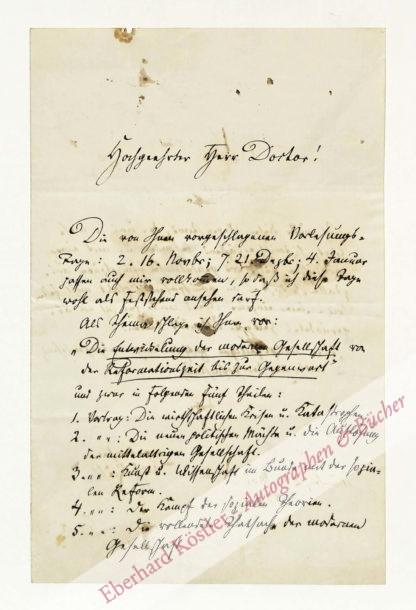 Hochgeehrter Herr Doctor!
Die von Ihnen vorgeschlagenen Vorlesungs-
tage: 2. 16. Novbr; 7. 21. Dezbr; 4. Januar
passen auch mir vollkommen, so daß ich diese Tage
wohl als feststehend ansehen darf.
Als Thema schlage ich Ihnen vor:
"Die Entwickelung der modernen Gesellschaft von
der Reformationszeit bis zur Gegenwart"
und zwar in folgenden fünf Theilen:
1. Vortrag: Die wirthschaftlichen Krisen u. Katastrophen.
2. " " : Die neuen politischen Mächte u. die Auflösung
der mittelaltrigen Gesellschaft.
3. " " : Kunst u. Wissenschaft im Bunde mit der sozia-
len Reform.
4. " " : Der Kampf der sozialen Theorien.
5. " " : Die vollendete Thatsache der modernen
Gesellschaft.
Eberhard Köstler Autographen & Bücher